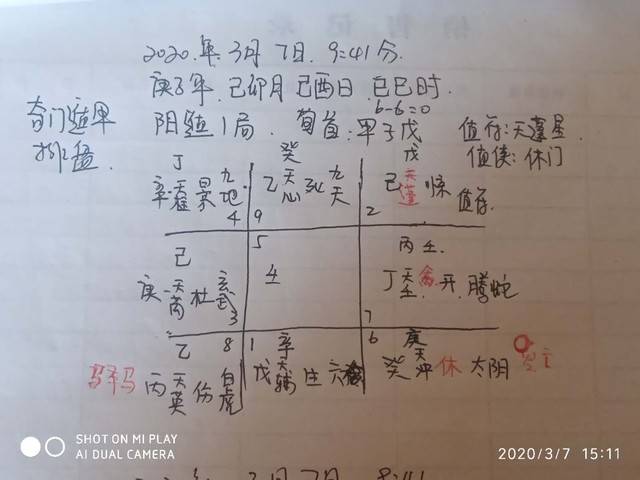 2020年3月7日.9:41分.
庚子年.己卯月己酉日.己巳时.
6-6=0
奇门遁甲
排盘.
阳遁1局.旬首:甲子戊
值符:天蓬星
值使:休门
丁
辛天芮景九地
4
癸
乙天心死九天
9
戊
己天蓬惊
2
值符
己
庚天芮杜玄武
3
5
壬
丙壬.
丁天壬禽开.腾蛇
7
乙
8
驿马丙天英伤白虎
1
辛
戊天辅生六合
6
庚
癸天冲休太阴
空亡
SHOT ON MI PLAY
AI DUAL CAMERA
2020/3/7 15:11